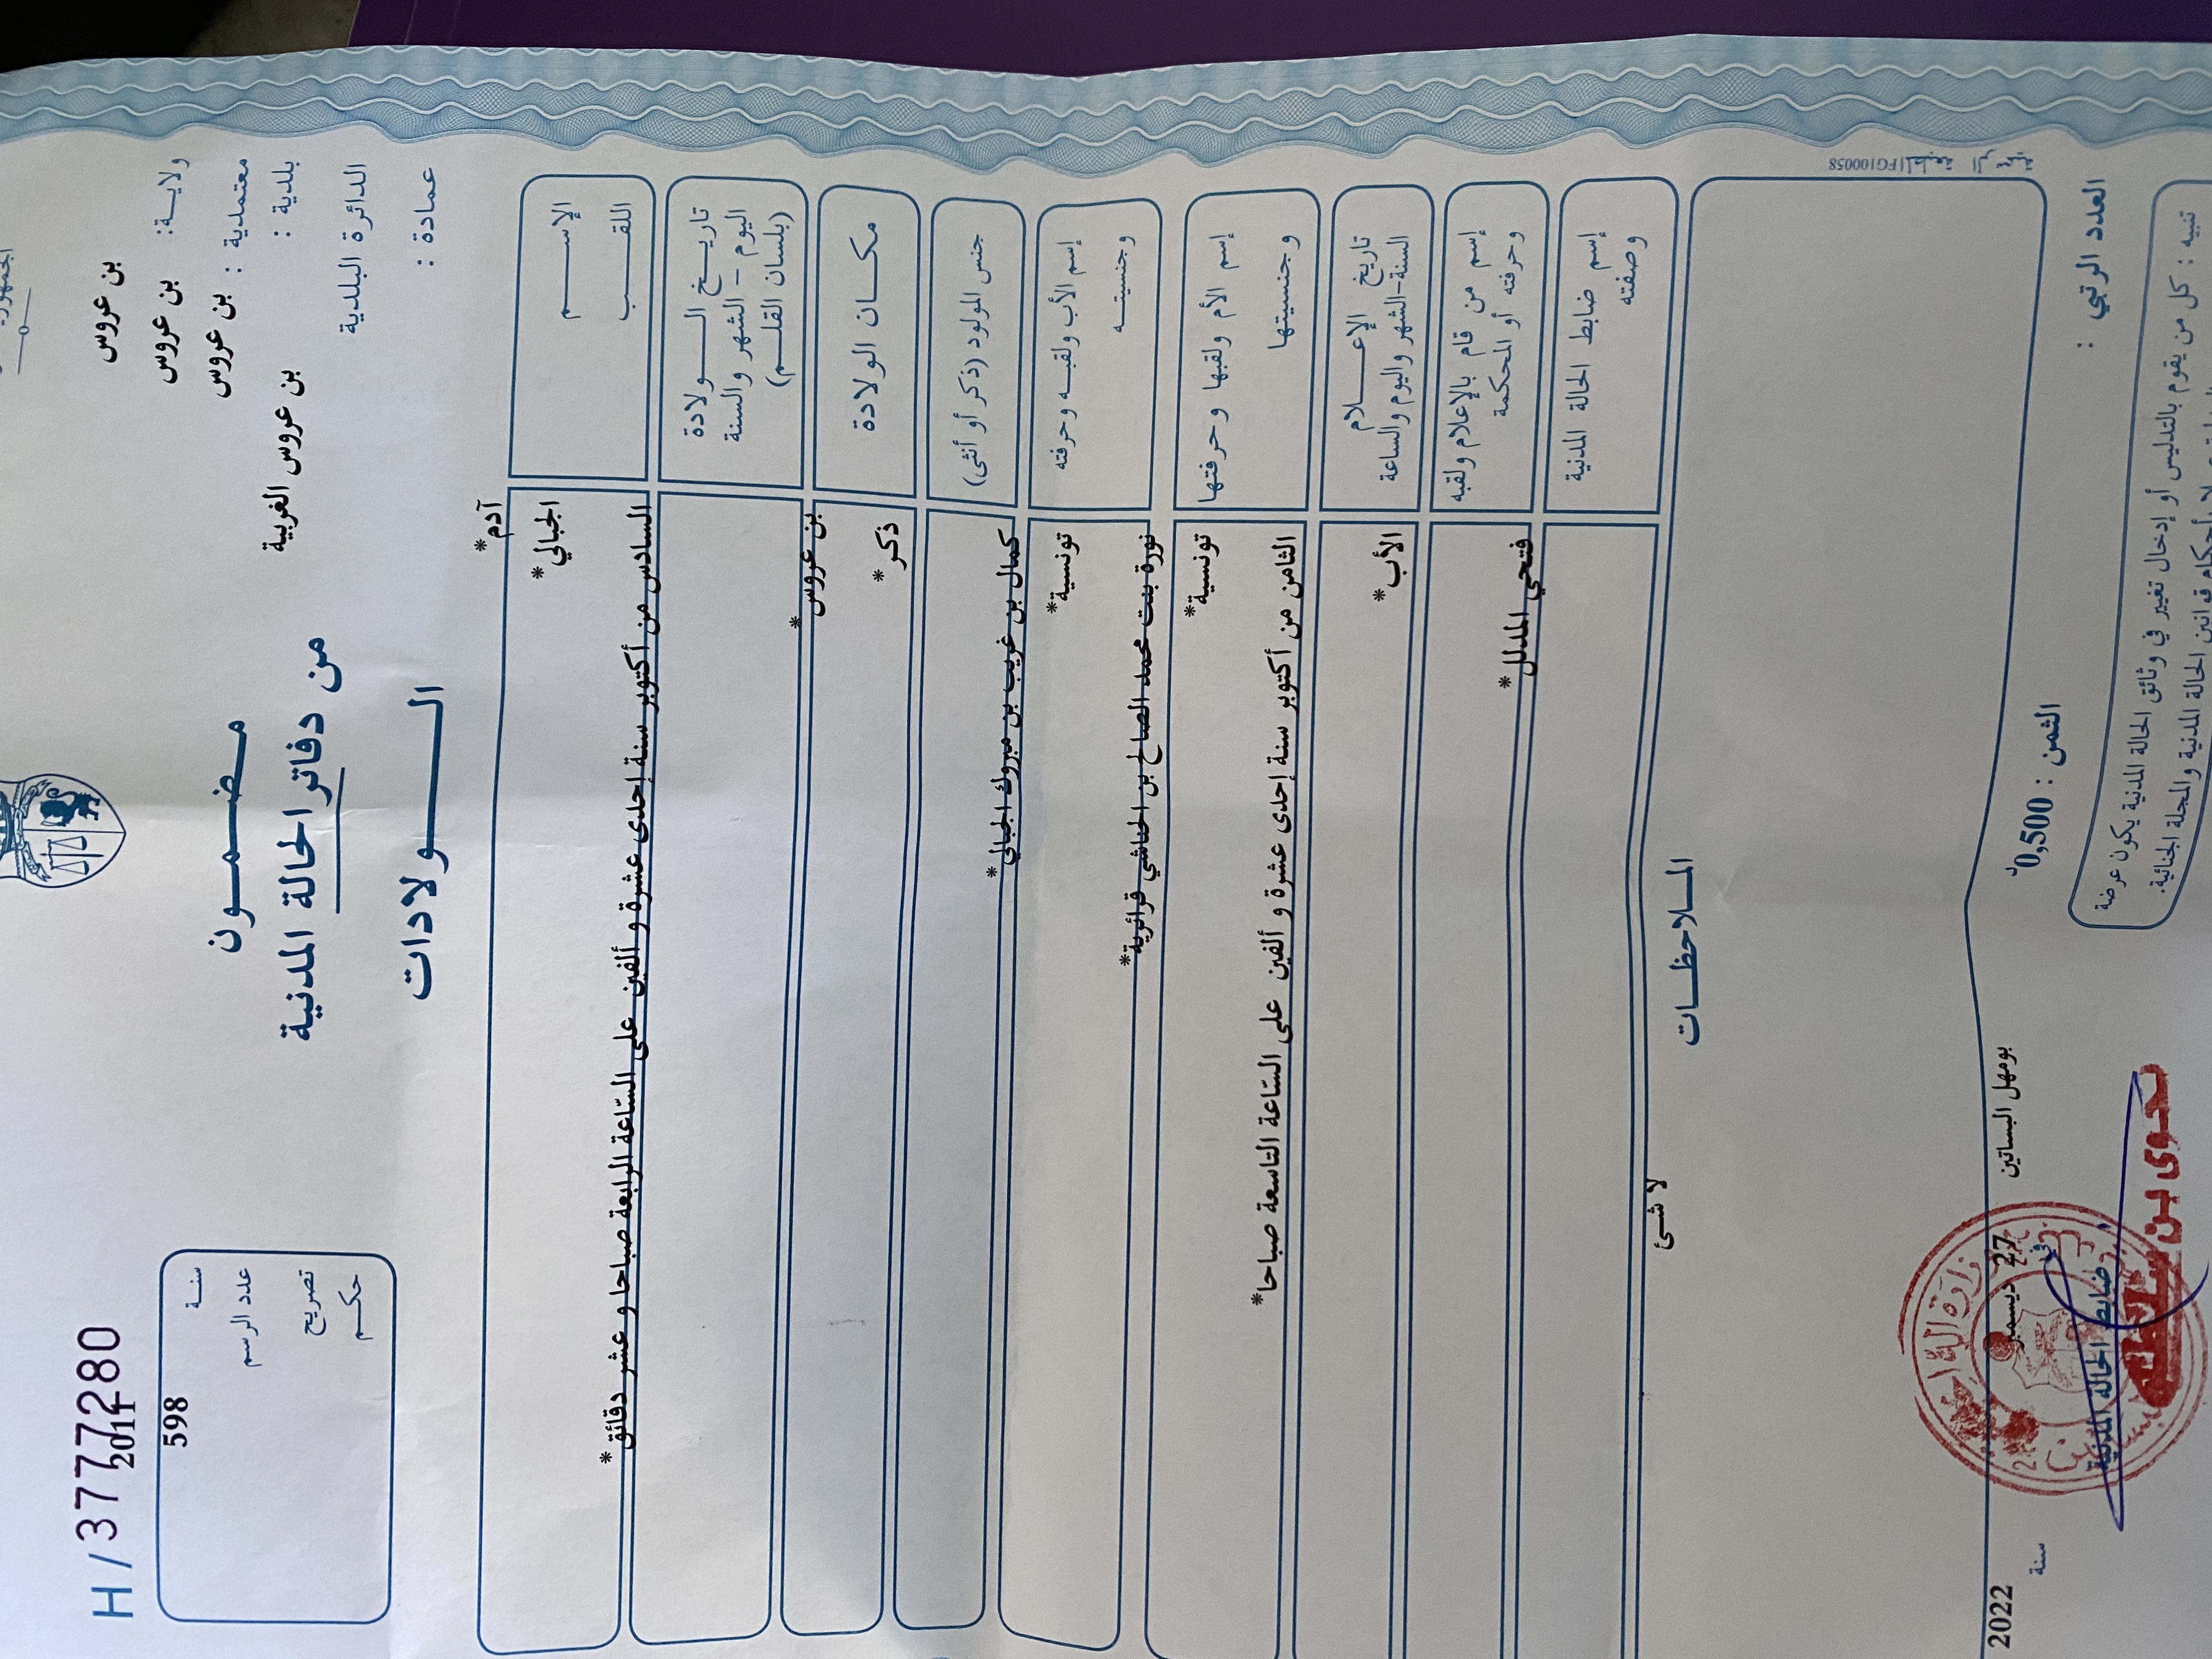 H / 3777280
مضمون
من دفاتر الحالة المدنية
الولادات
بن عروس
ولاية: بن عروس
معتمدية : بن عروس
بلدية :
بن عروس الغربية
الدائرة البلدية
عمادة :
2011
598
سنة
عدد الرسم
تصريح
حكم
آدم*
الإسم
الجبالي*
اللقب
السادس من أكتوبر سنة إحدى عشرة و ألفين على السّاعة الرابعة صباحا و عشر دقائق*
تاريخ الولادة
اليوم - الشهر والسنة
(بلسان القلم)
بن عروس*
مكان الولادة
ذكر*
جنس المولود (ذكر أو أنثى)
كمال بن غريب بن مبروك الجبالي*
إسم الأب ولقبه وحرفته
تونسية*
وجنسيته
نورة بنت محمد الصالح بن الحناشي قرائرية*
إسم الأم ولقبها وحرفتها
تونسية*
وجنسيتها
الثامن من أكتوبر سنة إحدى عشرة و ألفين على السّاعة التاسعة صباحا*
تاريخ الإعلام
السنة-الشهر واليوم والساعة
الأب*
إسم من قام بالإعلام ولقبه
وحرفته أو المحكمة
فتحي المدلل*
إسم ضابط الحالة المدنية
وصفته
لا شئ
الملاحظات
FG100058
بومهل البساتين
27 ديسمبر
2022
في
سنة
العدد الرتبي :
الثمن : 0,500د
ضابط الحالة المدنية
تنبيه : كل من يقوم بالتدليس أو إدخال تغيير في وثائق الحالة المدنية يكون عرضة
لأحكام قوانين الحالة المدنية والمجلة الجنائية.